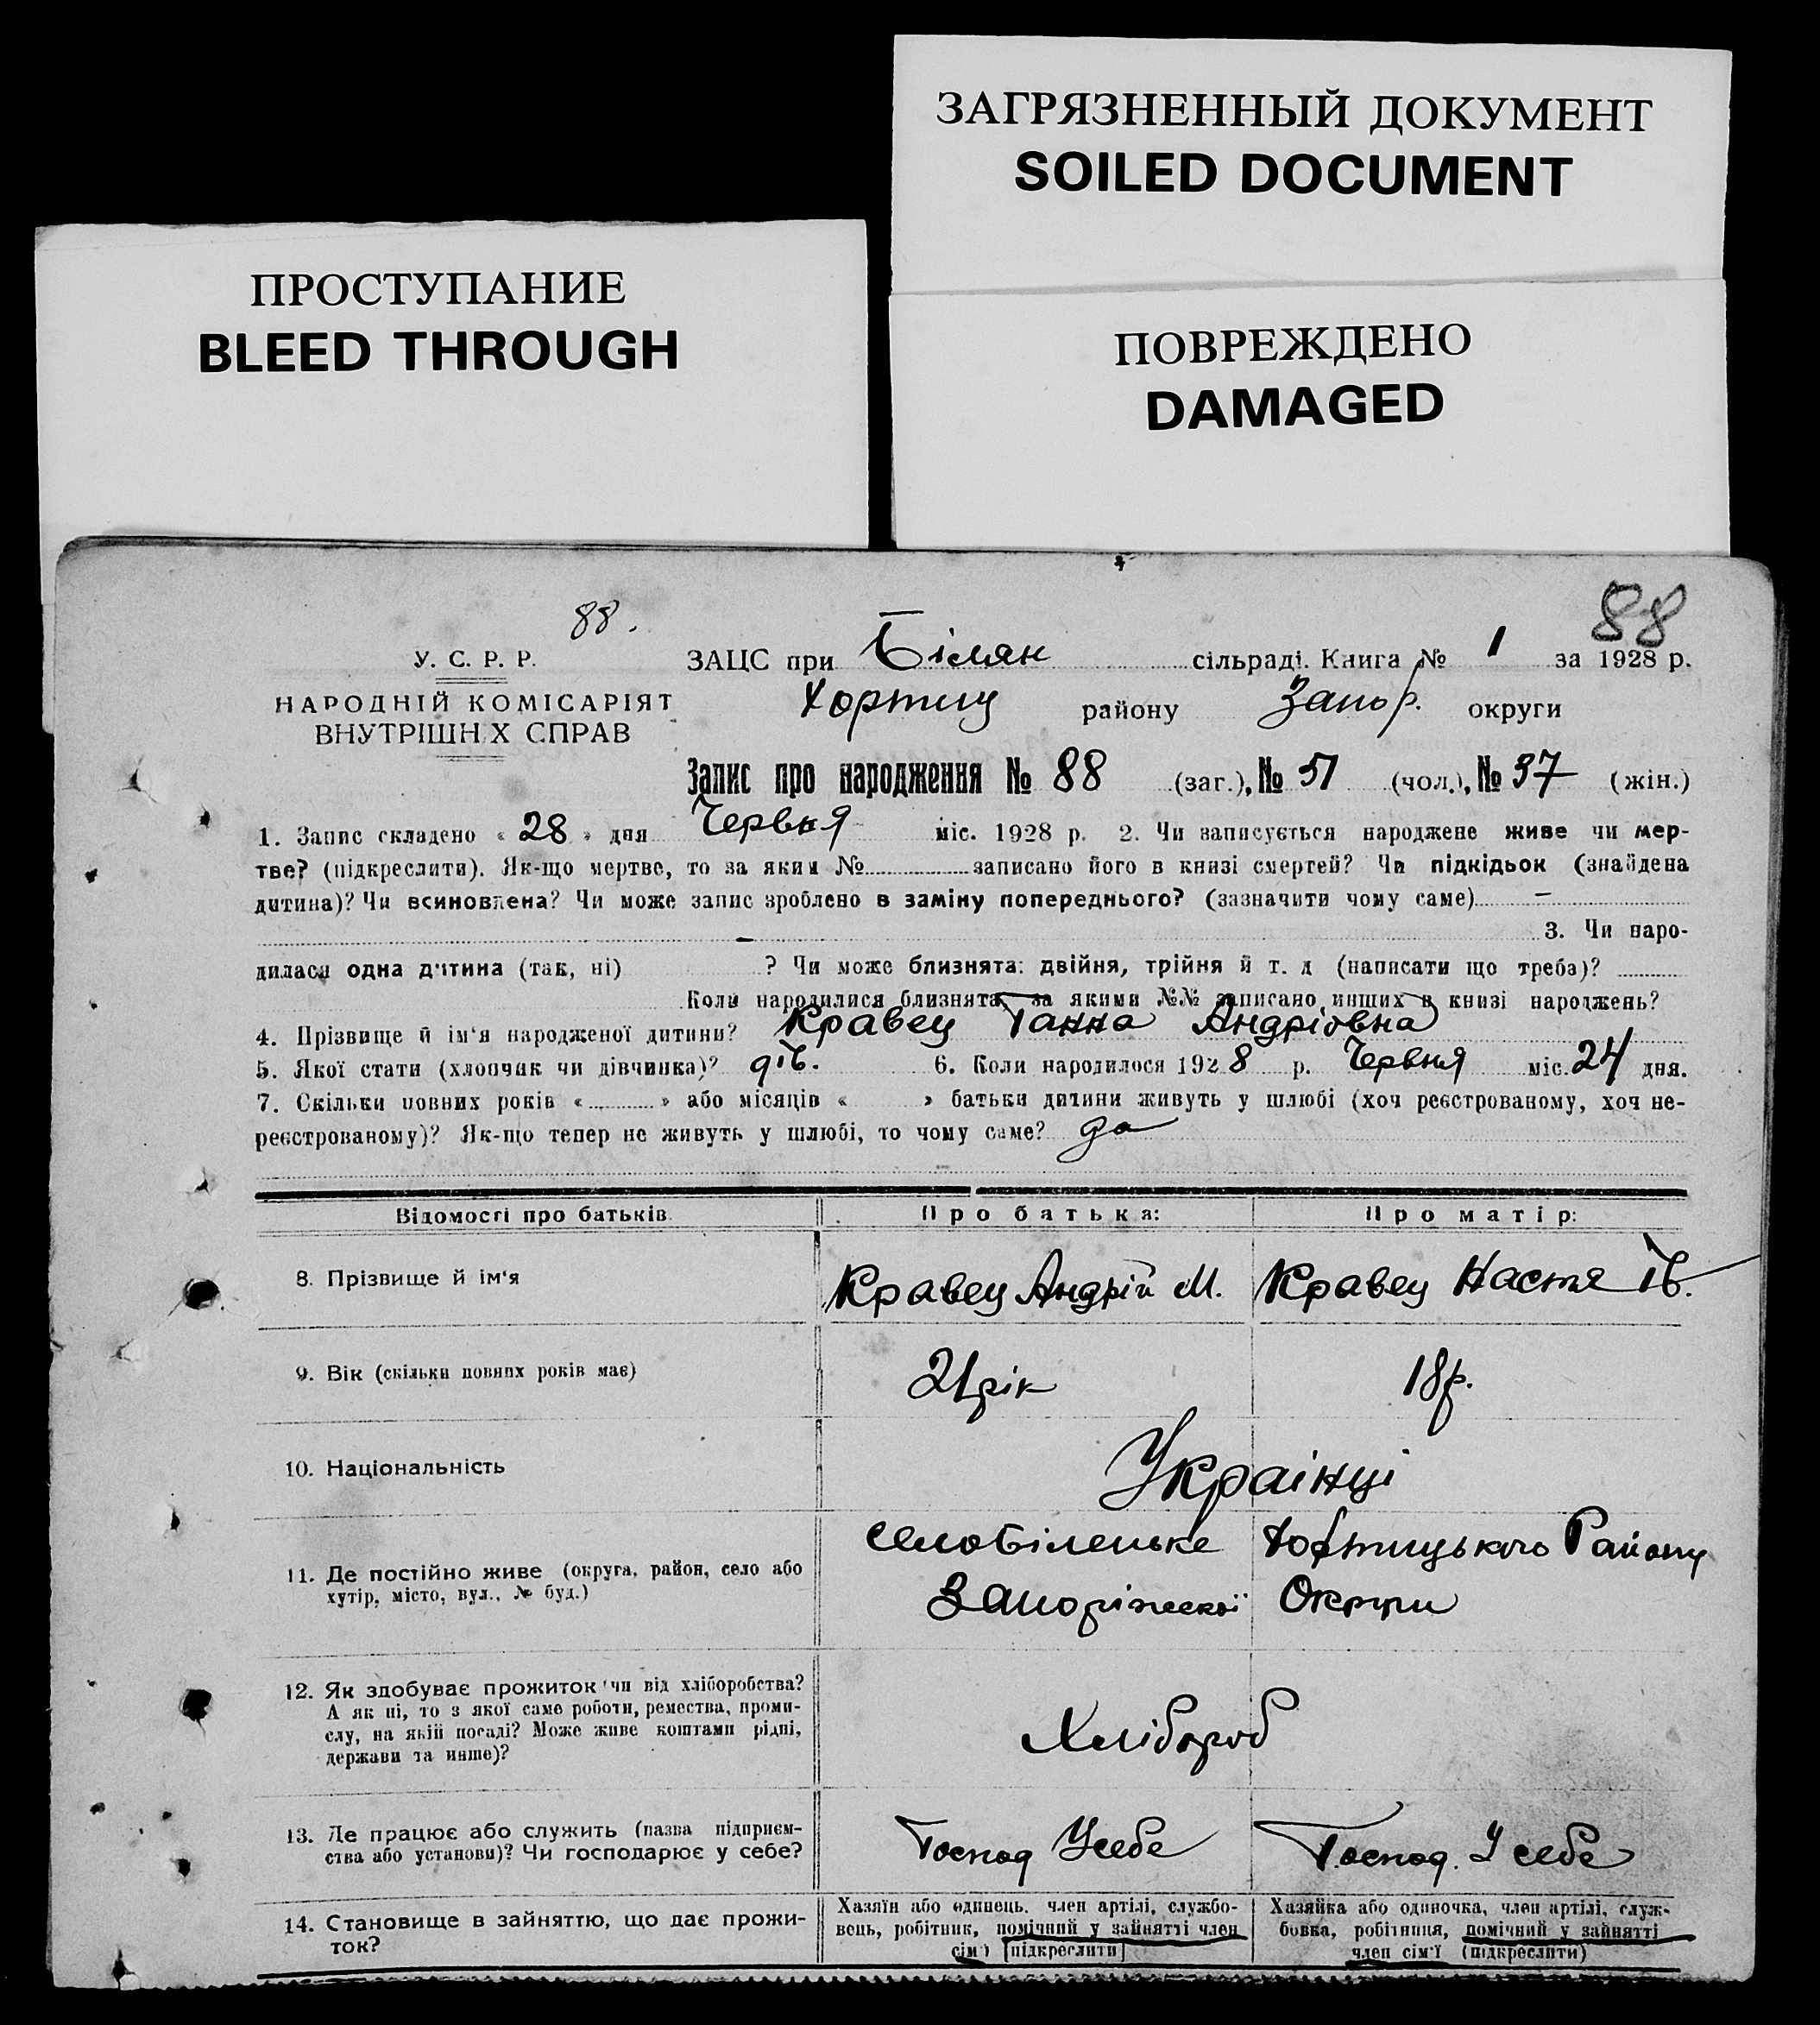 ЗАГРЯЗНЕННЫЙ ДОКУМЕНТ
SOILED DOCUMENT
ПРОСТУПАНИЕ
BLEED THROUGH
ПОВРЕЖДЕНО
DAMAGED
88.
88
У. С. Р. Р.
НАРОДНІЙ КОМІСАРІЯТ
ВНУТРІШНІХ СПРАВ
ЗАЦС при Білян сільраді. Книга № 1 за 1928 р.
Хортиц району Запор. округи
Запис про народження № 88 (заг.), № 51 (чол.), № 37 (жін.)
1. Запис складено « 28 » дня Червня міс. 1928 р. 2. Чи записується народжене живе чи мер-
тве? (підкреслити). Як-що мертве, то за яким № записано його в книзі смертей? Чи підкідьок (знайдена
дитина)? Чи всиновлена? Чи може запис зроблено в заміну попереднього? (зазначити чому саме) —
— 3. Чи наро-
дилася одна дитина (так, ні) ? Чи може близнята: двійня, трійня й т. д (написати що треба)?
Коли народилися близнята, за якими №№ записано инших в книзі народжень?
4. Прізвище й ім'я народженої дитини? Кравец Ганна Андріовна
5. Якої стати (хлопчик чи дівчинка)? дів. 6. Коли народилося 1928 р. Червня міс. 24 дня.
7. Скільки повних років « » або місяців « » батьки дитини живуть у шлюбі (хоч реєстрованому, хоч не-
реєстрованому)? Як-що тепер не живуть у шлюбі, то чому саме? да
Відомості про батьків. Про батька: Про матір:
8. Прізвище й ім'я Кравец Андрій М. Кравец Настя Ів.
9. Вік (скільки повних років має) 21 рік 18 р.
10. Національність Украінці
11. Де постійно живе (округа, район, село або
хутір, місто, вул., № буд.)
село Біленьке Хортицького Району
Запоріжської Округи
12. Як здобуває прожиток чи від хліборобства?
А як ні, то з якої саме роботи, ремества, проми-
слу, на якій посаді? Може живе коштами рідні,
держави та инше)?
Хлібороб
13. Де працює або служить (назва підприєм-
ства або установи)? Чи господарює у себе?
Господ Усебе Господ. У себе
14. Становище в зайняттю, що дає прожи-
ток?
Хазяїн або одинець. член артілі, службо-
вець, робітник, помічний у зайнятті член
сім'ї [підкреслити]
Хазяйка або одиночка, член артілі, служ-
бовка, робітниця, помічний у зайнятті
член сім'ї (підкреслити)